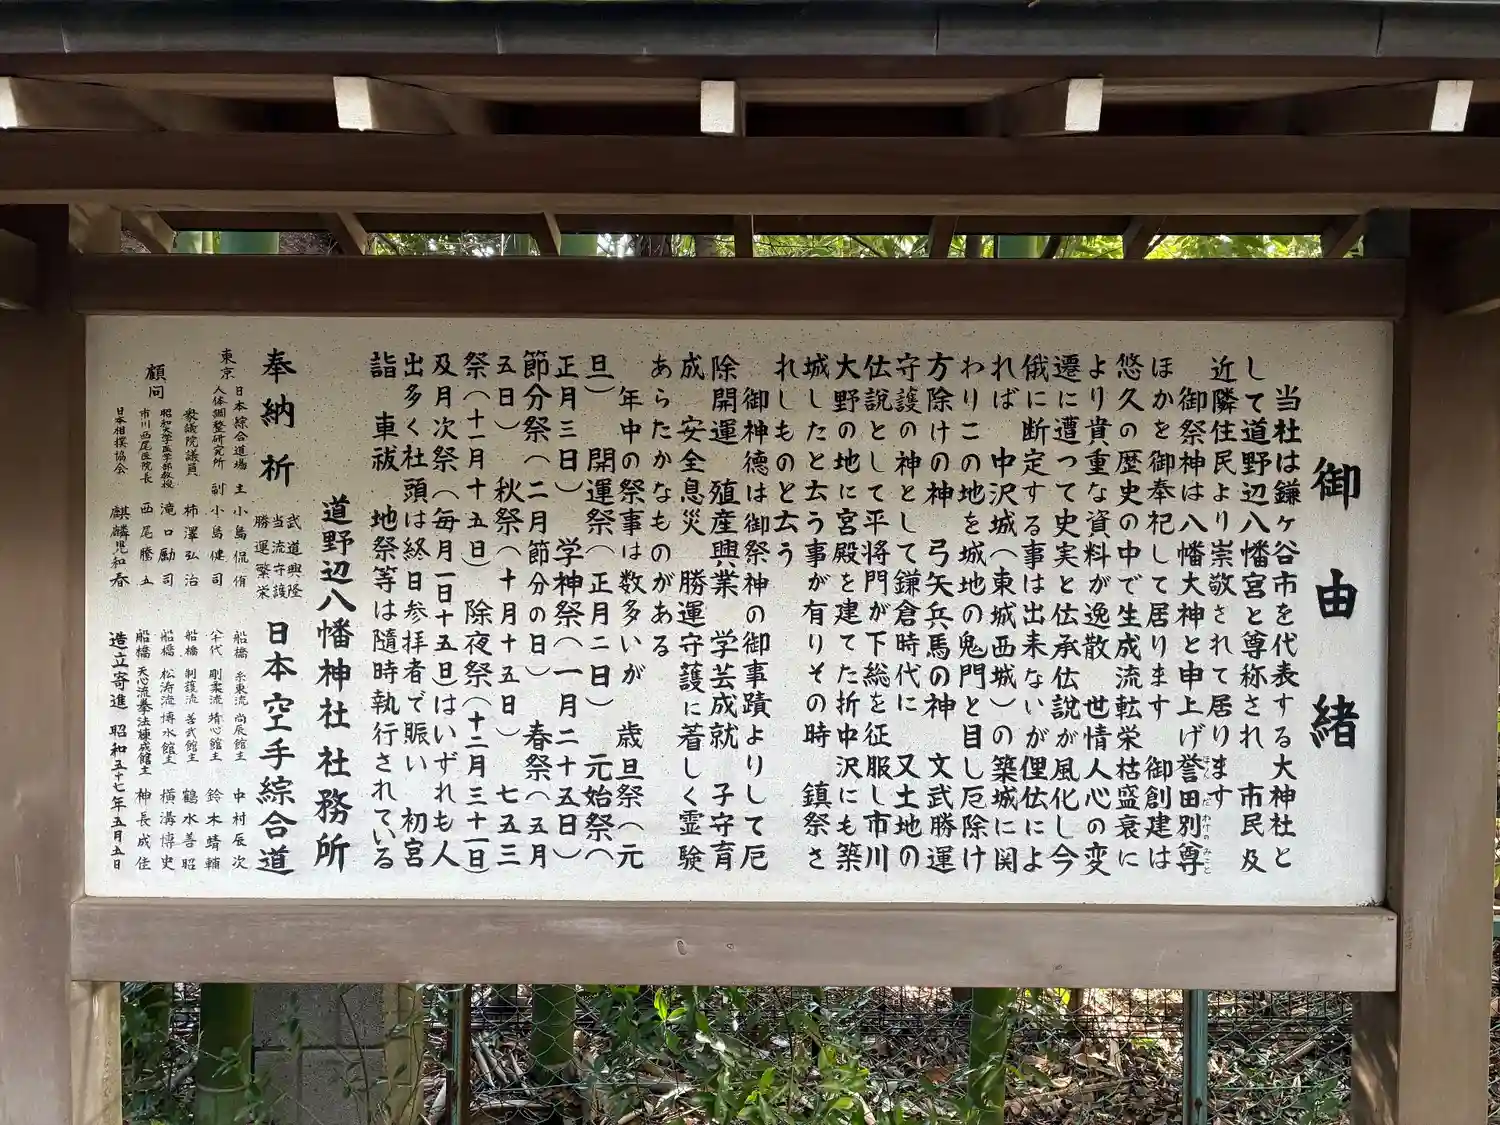 御由緒
当社は鎌ヶ谷市を代表する大神社と
して道野辺八幡宮と尊称され 市民及
近隣住民より崇敬されて居ります
御祭神は八幡大神と申上げ誉田別尊
ほんだわけのみこと
ほかを御奉祀して居ります 御創建は
悠久の歴史の中で生成流転栄枯盛衰に
より貴重な資料が逸散 世情人心の変
遷に遭つて史実と伝承伝説が風化し今
俄に断定する事は出来ないが俚伝によ
れば 中沢城(東城西城)の築城に関
わりこの地を城地の鬼門と目し厄除け
方除けの神 弓矢兵馬の神 文武勝運
守護の神として鎌倉時代に 又土地の
伝説として平将門が下総を征服し市川
大野の地に宮殿を建てた折中沢にも築
城したと云う事が有りその時 鎮祭さ
れしものと云う
御神徳は御祭神の御事蹟よりして厄
除開運 殖産興業 学芸成就 子守育
成 安全息災 勝運守護に著しく霊験
あらたかなものがある
年中の祭事は数多いが 歳旦祭(元
旦) 開運祭(正月二日) 元始祭(
正月三日) 学神祭(一月二十五日)
節分祭(二月節分の日) 春祭(五月
五日) 秋祭(十月十五日) 七五三
祭(十一月十五日) 除夜祭(十二月三十一日)
及月次祭(毎月一日十五日)はいずれも人
出多く社頭は終日参拝者で賑い 初宮
詣 車祓 地祭等は随時執行されている
道野辺八幡神社 社務所
奉納 祈
武道興隆
当流守護
勝運繁栄
日本空手綜合道
東京 日本綜合道場 主 小島侃侑
人体調整研究所 副 小島健司
顧問
衆議院議員 柿澤弘治
昭和大学医学部教授 滝口勵司
市川西尾医院長 西尾勝五
日本相撲協会 麒麟児和春
船橋 糸東流 尚辰館主 中村辰次
八千代 剛柔流 靖心館主 鈴木靖輔
船橋 制護流 善武館主 鶴水善昭
船橋 松涛流 博水館主 横溝博史
船橋 天心流拳法練成館主 神長成佳
造立寄進 昭和五十七年五月五日